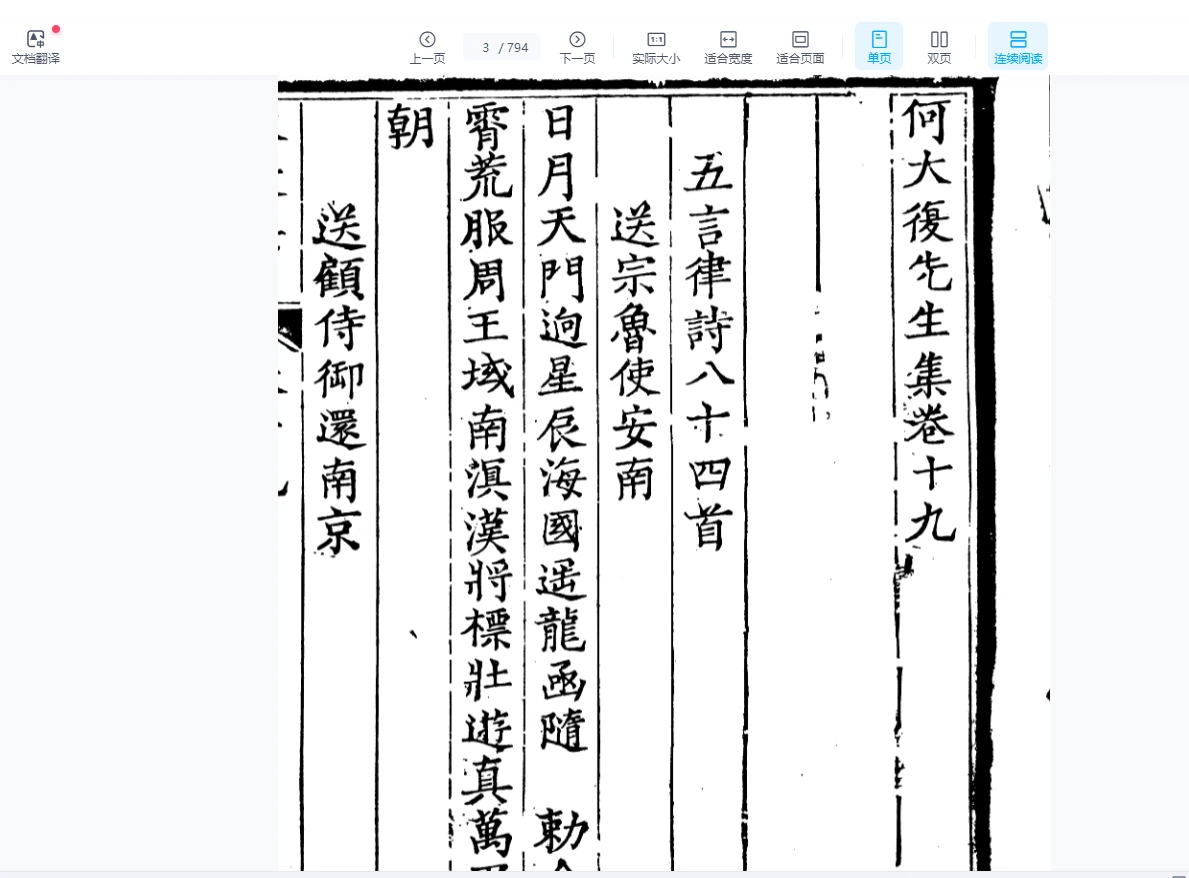 文档翻译
上一页
3 / 794
下一页
实际大小
适合宽度
适合页面
单页
双页
连续阅读
何大復先生集卷十九
五言律詩八十四首
送宗魯使安南
日月天門逈星辰海國遥龍函隨 勅
霄荒服周王域南滇漢將標壯遊真萬
朝
送顧侍御還南京